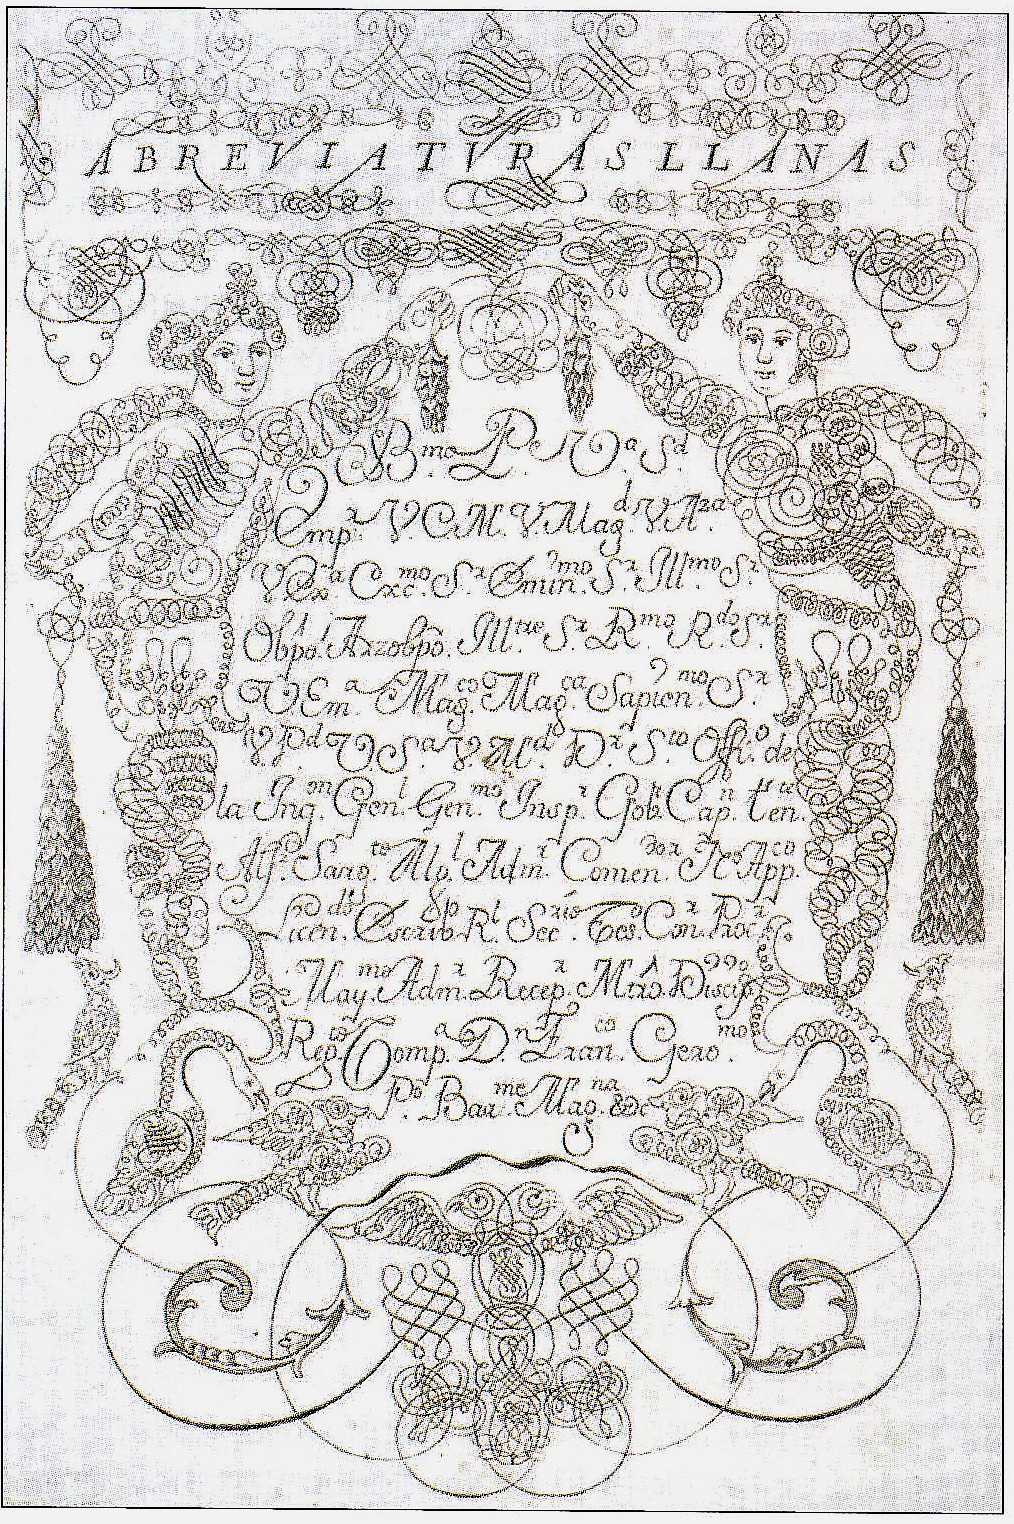 ABREVIATVRAS LLANAS
B.mo P.e V.a S.d
Emp.r V.C.M. V.Mag.d V.Aza.
V.Ex.a Exc.mo S.r Emin.mo S.r Ill.mo S.r
Obpo. Arzobpo. Ill.tre S.r R.mo R.do S.r
V.Em.a Mag.co Mag.ca Sapien.mo S.r
V.Pd V.S.a V.Md. D.r S.to Offi.o de
la Inq.on Gen.l Gen.mo Insp.r Gob.r Cap.n ten.te
Alf.o Sarg.to Alg.l Adm.r Comen.dor App.co
Licen.do Escrib.o R.l Sec.rio Tes.o Con.r Proc.r
May.mo Adm.r Recep.r Mtro. Discip.
Rep.co Comp.a D.n Fran.co Gero.mo
P.o Bar.me Mag.na &c